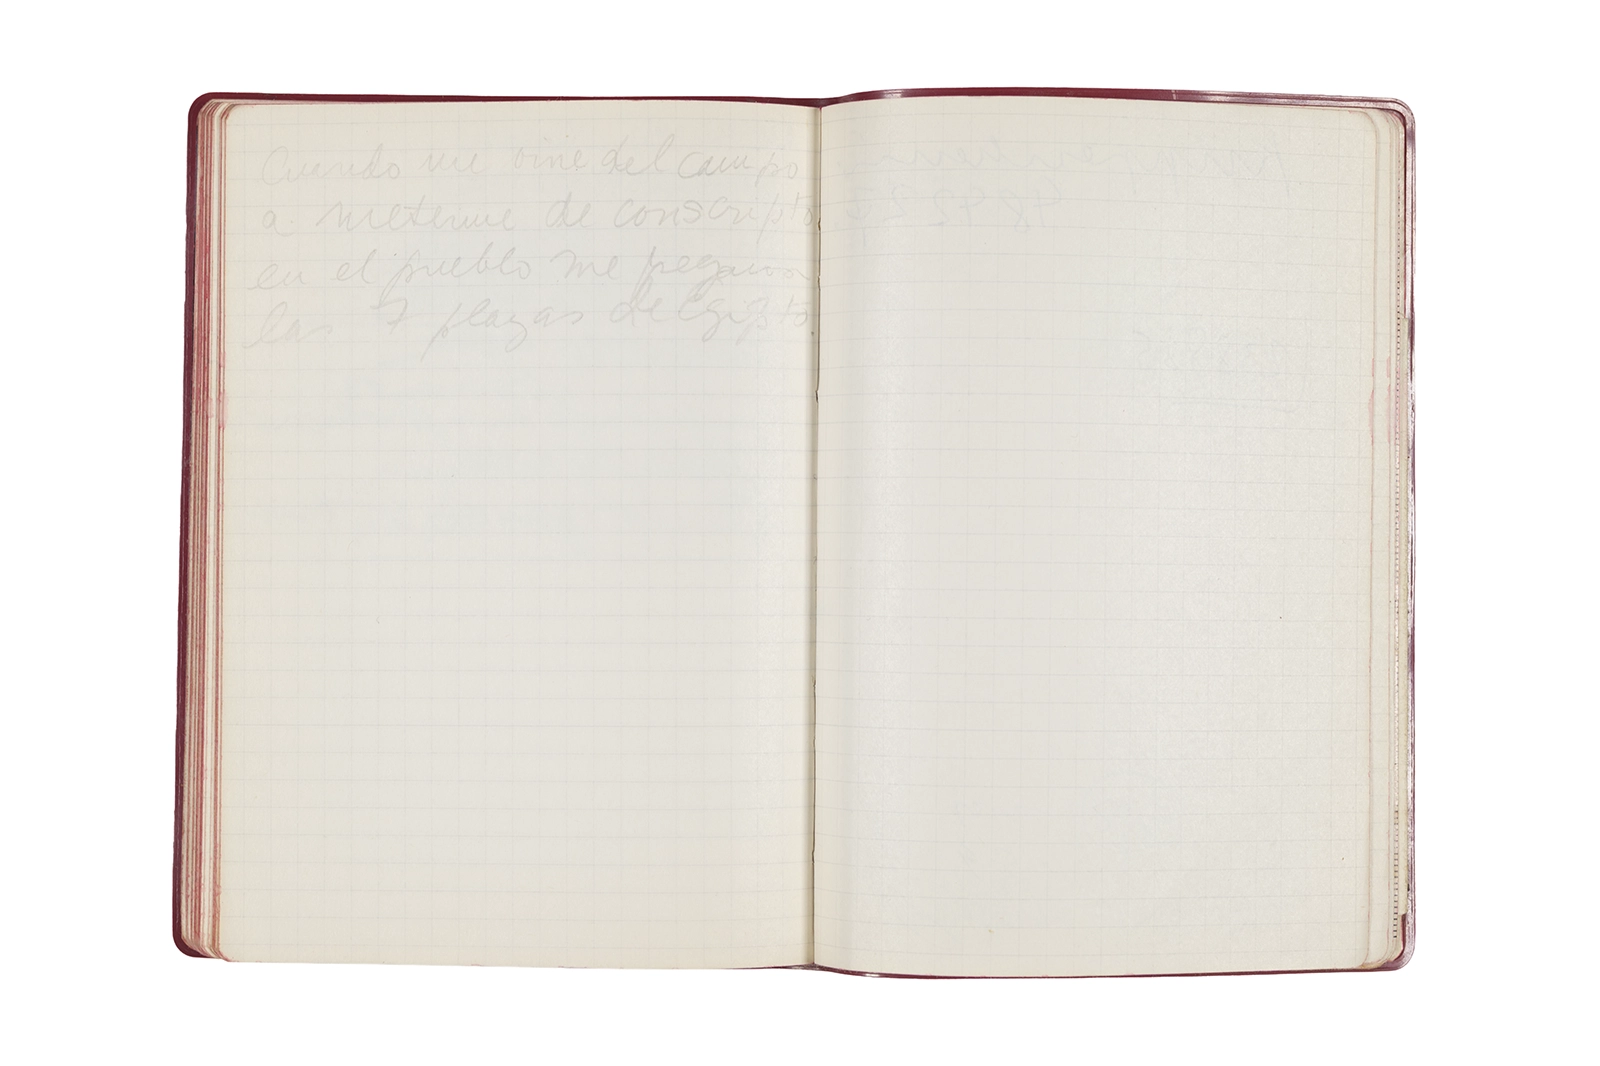 Cuando me vine del campo
a meterme de conscripto
en el pueblo me pegaron
las 7 plagas de Egipto